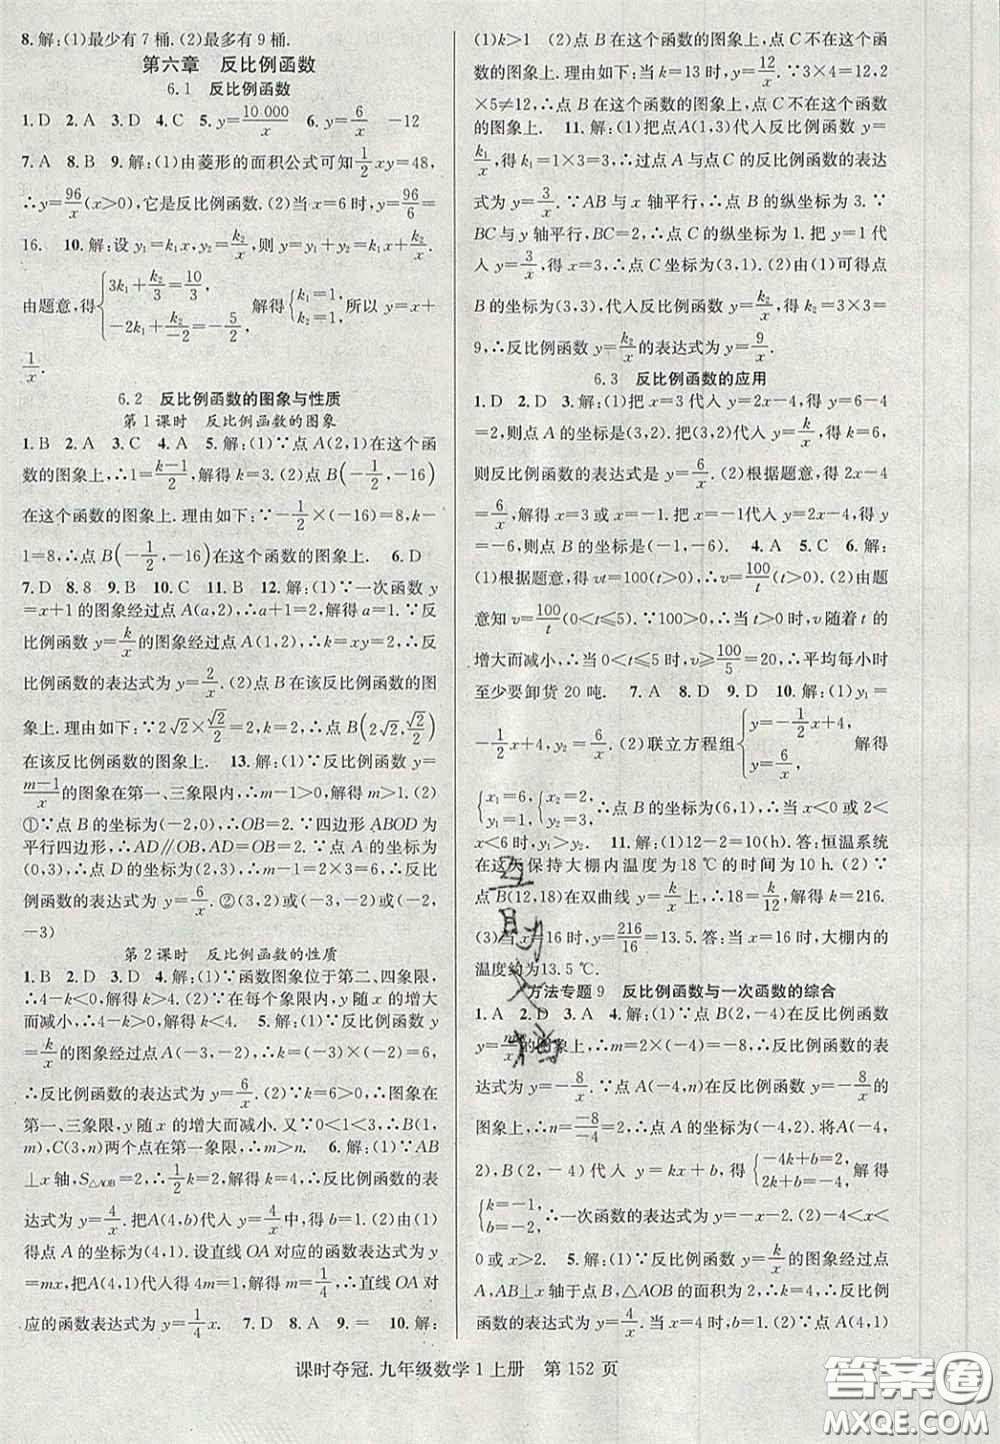 8.解:(1)最少有7桶.(2)最多有9桶.
第六章 反比例函数
6.1 反比例函数
1.D 2.A 3.D 4.C 5.y=10 000/x 6.y=6/x -12
7.A 8.B 9.解:(1)由菱形的面积公式可知1/2xy=48,
∴y=96/x(x>0),它是反比例函数.(2)当x=6时,y=96/6=
16. 10.解:设y₁=k₁x,y₂=k₂/x,则y=y₁+y₂=k₁x+k₂/x.
由题意,得{3k₁+k₂/3=10/3, -2k₁+k₂/-2=-5/2, 解得{k₁=1, k₂=1. 所以y=x+
1/x.
6.2 反比例函数的图象与性质
第1课时 反比例函数的图象
1.B 2.A 3.C 4.A 5.解:(1)∵点A(2,1)在这个函
数的图象上,∴1=k-1/2,解得k=3.(2)点B(-1/2,-16)
在这个函数的图象上.理由如下:∵-1/2×(-16)=8,k-
1=8,∴点B(-1/2,-16)在这个函数的图象上. 6.D
7.D 8.8 9.B 10.C 11.B 12.解:(1)∵一次函数y
=x+1的图象经过点A(a,2),∴a+1=2,解得a=1.∵反
比例函数y=k/x的图象经过点A(1,2),∴k=xy=2,∴反
比例函数的表达式为y=2/x.(2)点B在该反比例函数的图
象上.理由如下:∵2√2×√2/2=2,k=2,∴点B(2√2,√2/2)
在该反比例函数的图象上. 13.解:(1)∵反比例函数y=
m-1/x的图象在第一、三象限内,∴m-1>0,∴m>1.(2)
①∵点B的坐标为(-2,0),∴OB=2.∵四边形ABOD为
平行四边形,∴AD∥OB,AD=OB=2.又∵点A的坐标为
(0,3),∴点D的坐标为(2,3),∴m-1=2×3=6,∴反比
例函数的表达式为y=6/x.②(3,2)或(-3,-2)或(-2,
-3)
第2课时 反比例函数的性质
1.B 2.D 3.D 4.解:(1)∵函数图象位于第二、四象限,
∴4-k<0,∴k>4.(2)∵在每个象限内,y随x的增大
而减小,∴4-k>0,∴k<4. 5.解:(1)∵反比例函数y=
k/x的图象经过点A(-3,-2),∴k=(-3)×(-2)=6,
∴反比例函数的表达式为y=6/x.(2)∵k=6>0,∴图象在
第一、三象限,y随x的增大而减小.又∵0<1<3,∴B(1,
m),C(3,n)两个点在第一象限,∴m>n. 6.解:(1)∵AB
⊥x轴,S△AOB=2,∴1/2k=2,∴k=4,∴反比例函数的表
达式为y=4/x.把A(4,b)代入y=4/x中,得b=1.(2)由(1)
得点A的坐标为(4,1).设直线OA对应的函数表达式为y
=mx,把A(4,1)代人得4m=1,解得m=1/4,∴直线OA对
应的函数表达式为y=1/4x. 7.D 8.A 9.= 10.解:
(1)k>1 (2)点B在这个函数的图象上,点C不在这个函
数的图象上.理由如下:当k=13时,y=12/x.∵3×4=12,2
×5≠12,∴点B在这个函数的图象上,点C不在这个函数
的图象上. 11.解:(1)把点A(1,3)代人反比例函数y=
k₁/x,得k₁=1×3=3,∴过点A与点C的反比例函数的表达
式为y=3/x.∵AB与x轴平行,∴点B的纵坐标为3.∵
BC与y轴平行,BC=2,∴点C的纵坐标为1.把y=1代
人y=3/x,得x=3,∴点C坐标为(3,1).(2)由(1)可得点
B的坐标为(3,3),代人反比例函数y=k₂/x,得k₂=3×3=
9,∴反比例函数y=k₂/x的表达式为y=9/x.
6.3 反比例函数的应用
1.D 2.D 3.解:(1)把x=3代人y=2x-4,得y=6-4=
2,则点A的坐标是(3,2).把(3,2)代人y=k/x,得k=6,
则反比例函数的表达式是y=6/x.(2)根据题意,得2x-4
=6/x,解得x=3或x=-1.把x=-1代人y=2x-4,得y
=-6,则点B的坐标是(-1,-6). 4.A 5.A 6.解:
(1)根据题意,得vt=100(t>0),∴v=100/t(t>0).(2)由题
意知v=100/t(0<t≤5).∵100>0,∴当t>0时,v随着t的
增大而减小,∴当0<t≤5时,v≥100/5=20,∴平均每小时
至少要卸货20吨. 7.A 8.D 9.D 10.解:(1)y₁=
-1/2x+4,y₂=6/x.(2)联立方程组{y=-1/2x+4, y=6/x. 解得
{x₁=6, y₁=1, {x₂=2, y₂=3.∴点B的坐标为(6,1),∴当x<0或2<
x<6时,y₁>y₂. 11.解:(1)12-2=10(h).答:恒温系统
在这天保持大棚内温度为18℃的时间为10h.(2)∵
点B(12,18)在双曲线y=k/x上,∴18=k/12,解得k=216.
(3)当x=16时,y=216/16=13.5.答:当x=16时,大棚内的
温度约为13.5℃.
方法专题9 反比例函数与一次函数的综合
1.A 2.D 3.A 4.解:(1)∵点B(2,-4)在反比例函数
y=m/x的图象上,∴m=2×(-4)=-8,∴反比例函数的表
达式为y=-8/x.∵点A(-4,n)在反比例函数y=-8/x的
图象上,∴n=-8/-4=2,∴点A的坐标为(-4,2).将A(-4,
2),B(2,-4)代人y=kx+b,得{-4k+b=2, 2k+b=-4,解得
{k=-1, b=-2.∴一次函数的表达式为y=-x-2.(2)-4<x<
0或x>2 5.解:(1)∵反比例函数y=k/x的图象经过点
A,AB⊥x轴于点B,△AOB的面积为2,∴k=4,∴反比例
函数的表达式为y=4/x.∵点A(4,n)在反比例函数y=
课时夺冠.九年级数学1上册 第152页
答案圈
MXQE.COM